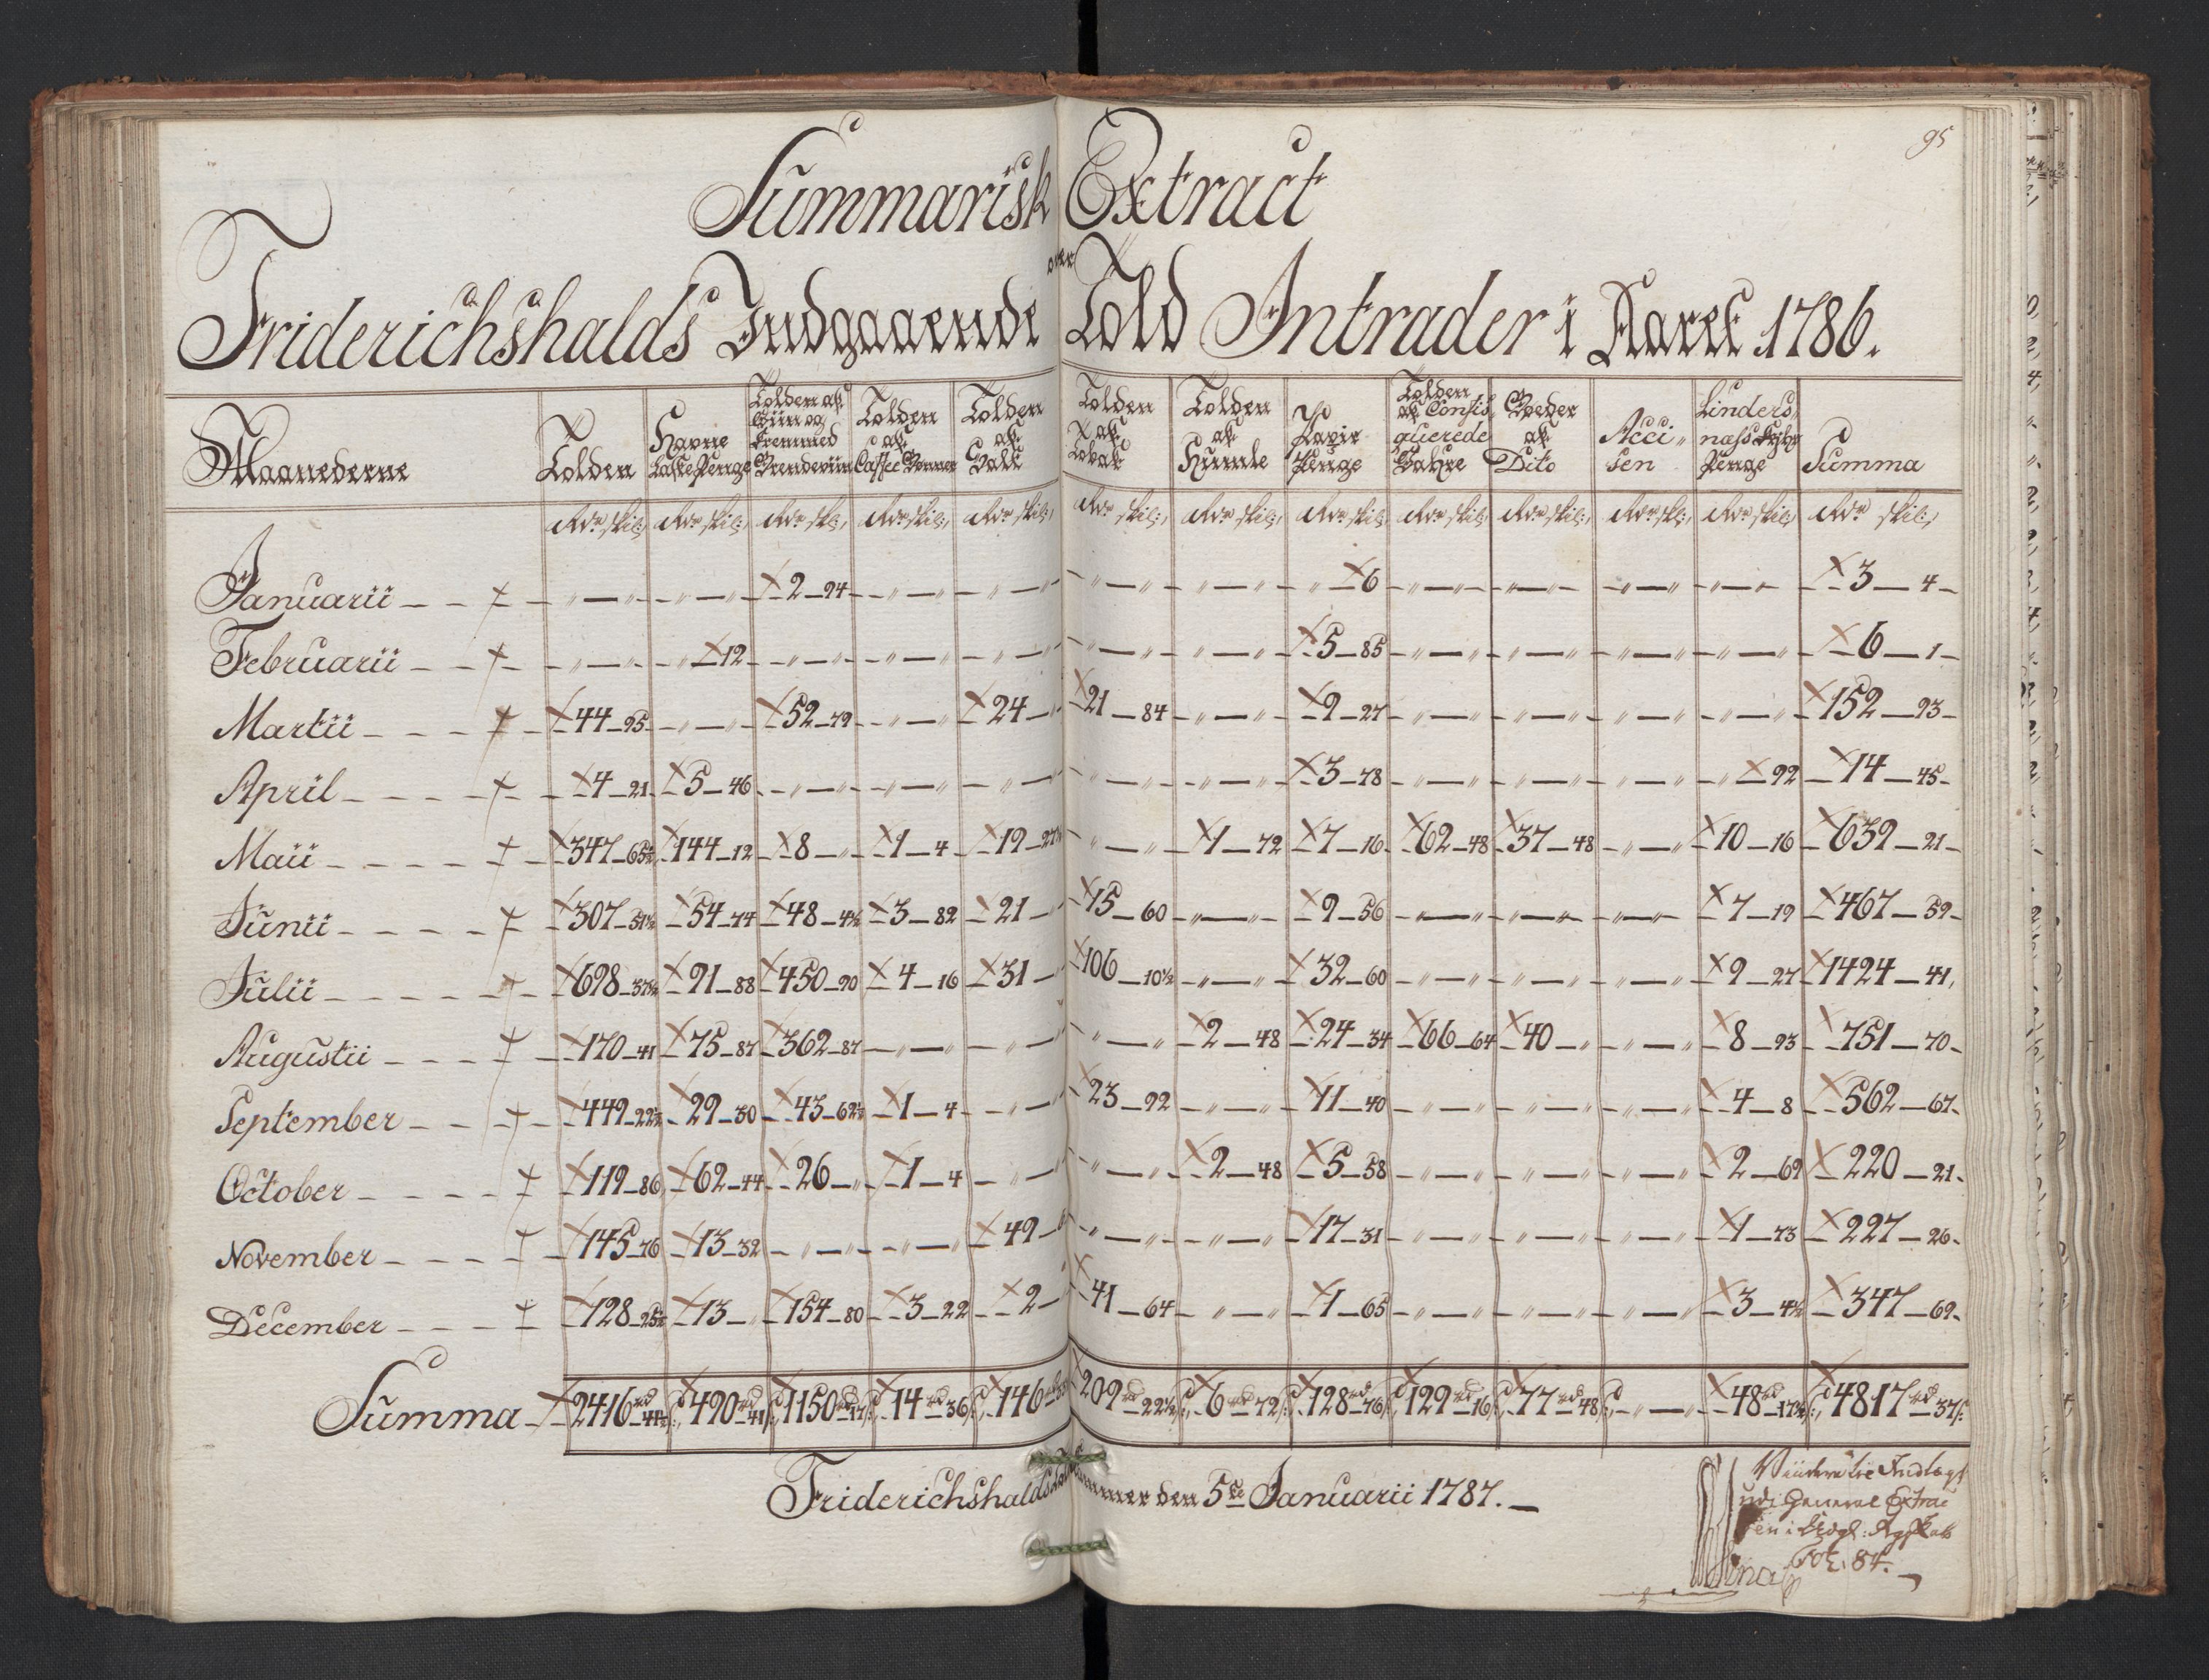 95
Summarisk Extract
over
Friderichshalds Indgaaende Told Intrader i Aaret 1786.
Maanederne | Tolden | Havne Laste Penge | Tolden af Viin og Fremmed Brendeviin | Tolden af Caffee Bønner | Tolden af Salt | Tolden af Tobak | Tolden af Humle | Penge | Tolden af Confisquerede Vahre | Bøder af Dito | Acci„sen | Lindersnæss Penge | Summa
Rdr skil: | Rdr skil: | Rdr sk: | Rdr skil: | Rdr skil: | Rdr skil: | Rdr skil: | Rdr skil: | Rdr skil: | Rdr skil: | Rdr sk: | Rdr skil: | Rdr skil:
Januarii | „ — „ | „ — „ | 2 — 94 | „ — „ | „ — „ | „ — „ | „ — „ | „ — 6 | „ — „ | „ — „ | „ — „ | „ — „ | 3 — 4
Februarii | „ — „ | „ — 12 | „ — „ | „ — „ | „ — „ | „ — „ | „ — „ | 5 — 85 | „ — „ | „ — „ | „ — „ | „ — „ | 6 — 1
Martii | 44 — 95 | „ — „ | 52 — 79 | „ — „ | 24 — „ | 21 — 84 | „ — „ | 9 — 27 | „ — „ | „ — „ | „ — „ | „ — „ | 152 — 93
April | 4 — 21 | 5 — 46 | „ — „ | „ — „ | „ — „ | „ — „ | „ — „ | 3 — 78 | „ — „ | „ — „ | „ — „ | „ — 92 | 14 — 45
Maii | 347 — 65½ | 144 — 12 | 8 — „ | 1 — 4 | 19 — 27½ | „ — „ | 1 — 72 | 7 — 16 | 62 — 48 | 37 — 48 | „ — „ | 10 — 16 | 639 — 21
Junii | 307 — 31½ | 54 — 74 | 48 — 4½ | 3 — 82 | 21 — | 15 — 60 | „ — „ | 9 — 56 | „ — „ | „ — „ | „ — „ | 7 — 19 | 467 — 59
Julii | 698 — 37½ | 91 — 88 | 450 — 90 | 4 — 16 | 31 — | 106 — 10½ | „ — „ | 32 — 60 | „ — „ | „ — „ | „ — „ | 9 — 27 | 1424 — 41
Augustii | 170 — 41 | 75 — 87 | 362 — 87 | „ — „ | „ — „ | „ — „ | 2 — 48 | 24 — 34 | 66 — 64 | 40 — „ | „ — „ | 8 — 93 | 751 — 70
September | 449 — 22½ | 29 — 30 | 43 — 62½ | 1 — 4 | „ — „ | 23 — 92 | „ — „ | 11 — 40 | „ — „ | „ — „ | „ — „ | 4 — 8 | 562 — 67
October | 119 — 86 | 62 — 44 | 26 — „ | 1 — 4 | „ — „ | „ — „ | 2 — 48 | 5 — 58 | „ — „ | „ — „ | „ — „ | 2 — 69 | 220 — 21
November | 145 — 76 | 13 — 32 | „ — „ | „ — „ | 49 — | „ — „ | „ — „ | 17 — 31 | „ — „ | „ — „ | „ — „ | 1 — 73 | 227 — 26
December | 128 — 25½ | 13 — „ | 154 — 80 | 3 — 22 | 2 — | 41 — 64 | „ — „ | 1 — 65 | „ — „ | „ — „ | „ — „ | 3 — 4½ | 347 — 69
Summa | 2416 rd 41½ | 490 rd 41 | 1150 rd 17 | 14 rd 36 | 146 | 209 rd 22½ | 6 rd 72 | 128 rd 76 | 129 rd 16 | 77 rd 48 | „ — „ | 48 rd 17½ | 4817 rd 37
Friderichshalds den 5te Januarii 1787.
Indlagt
udi General Extrac
ten i
fol: 84.